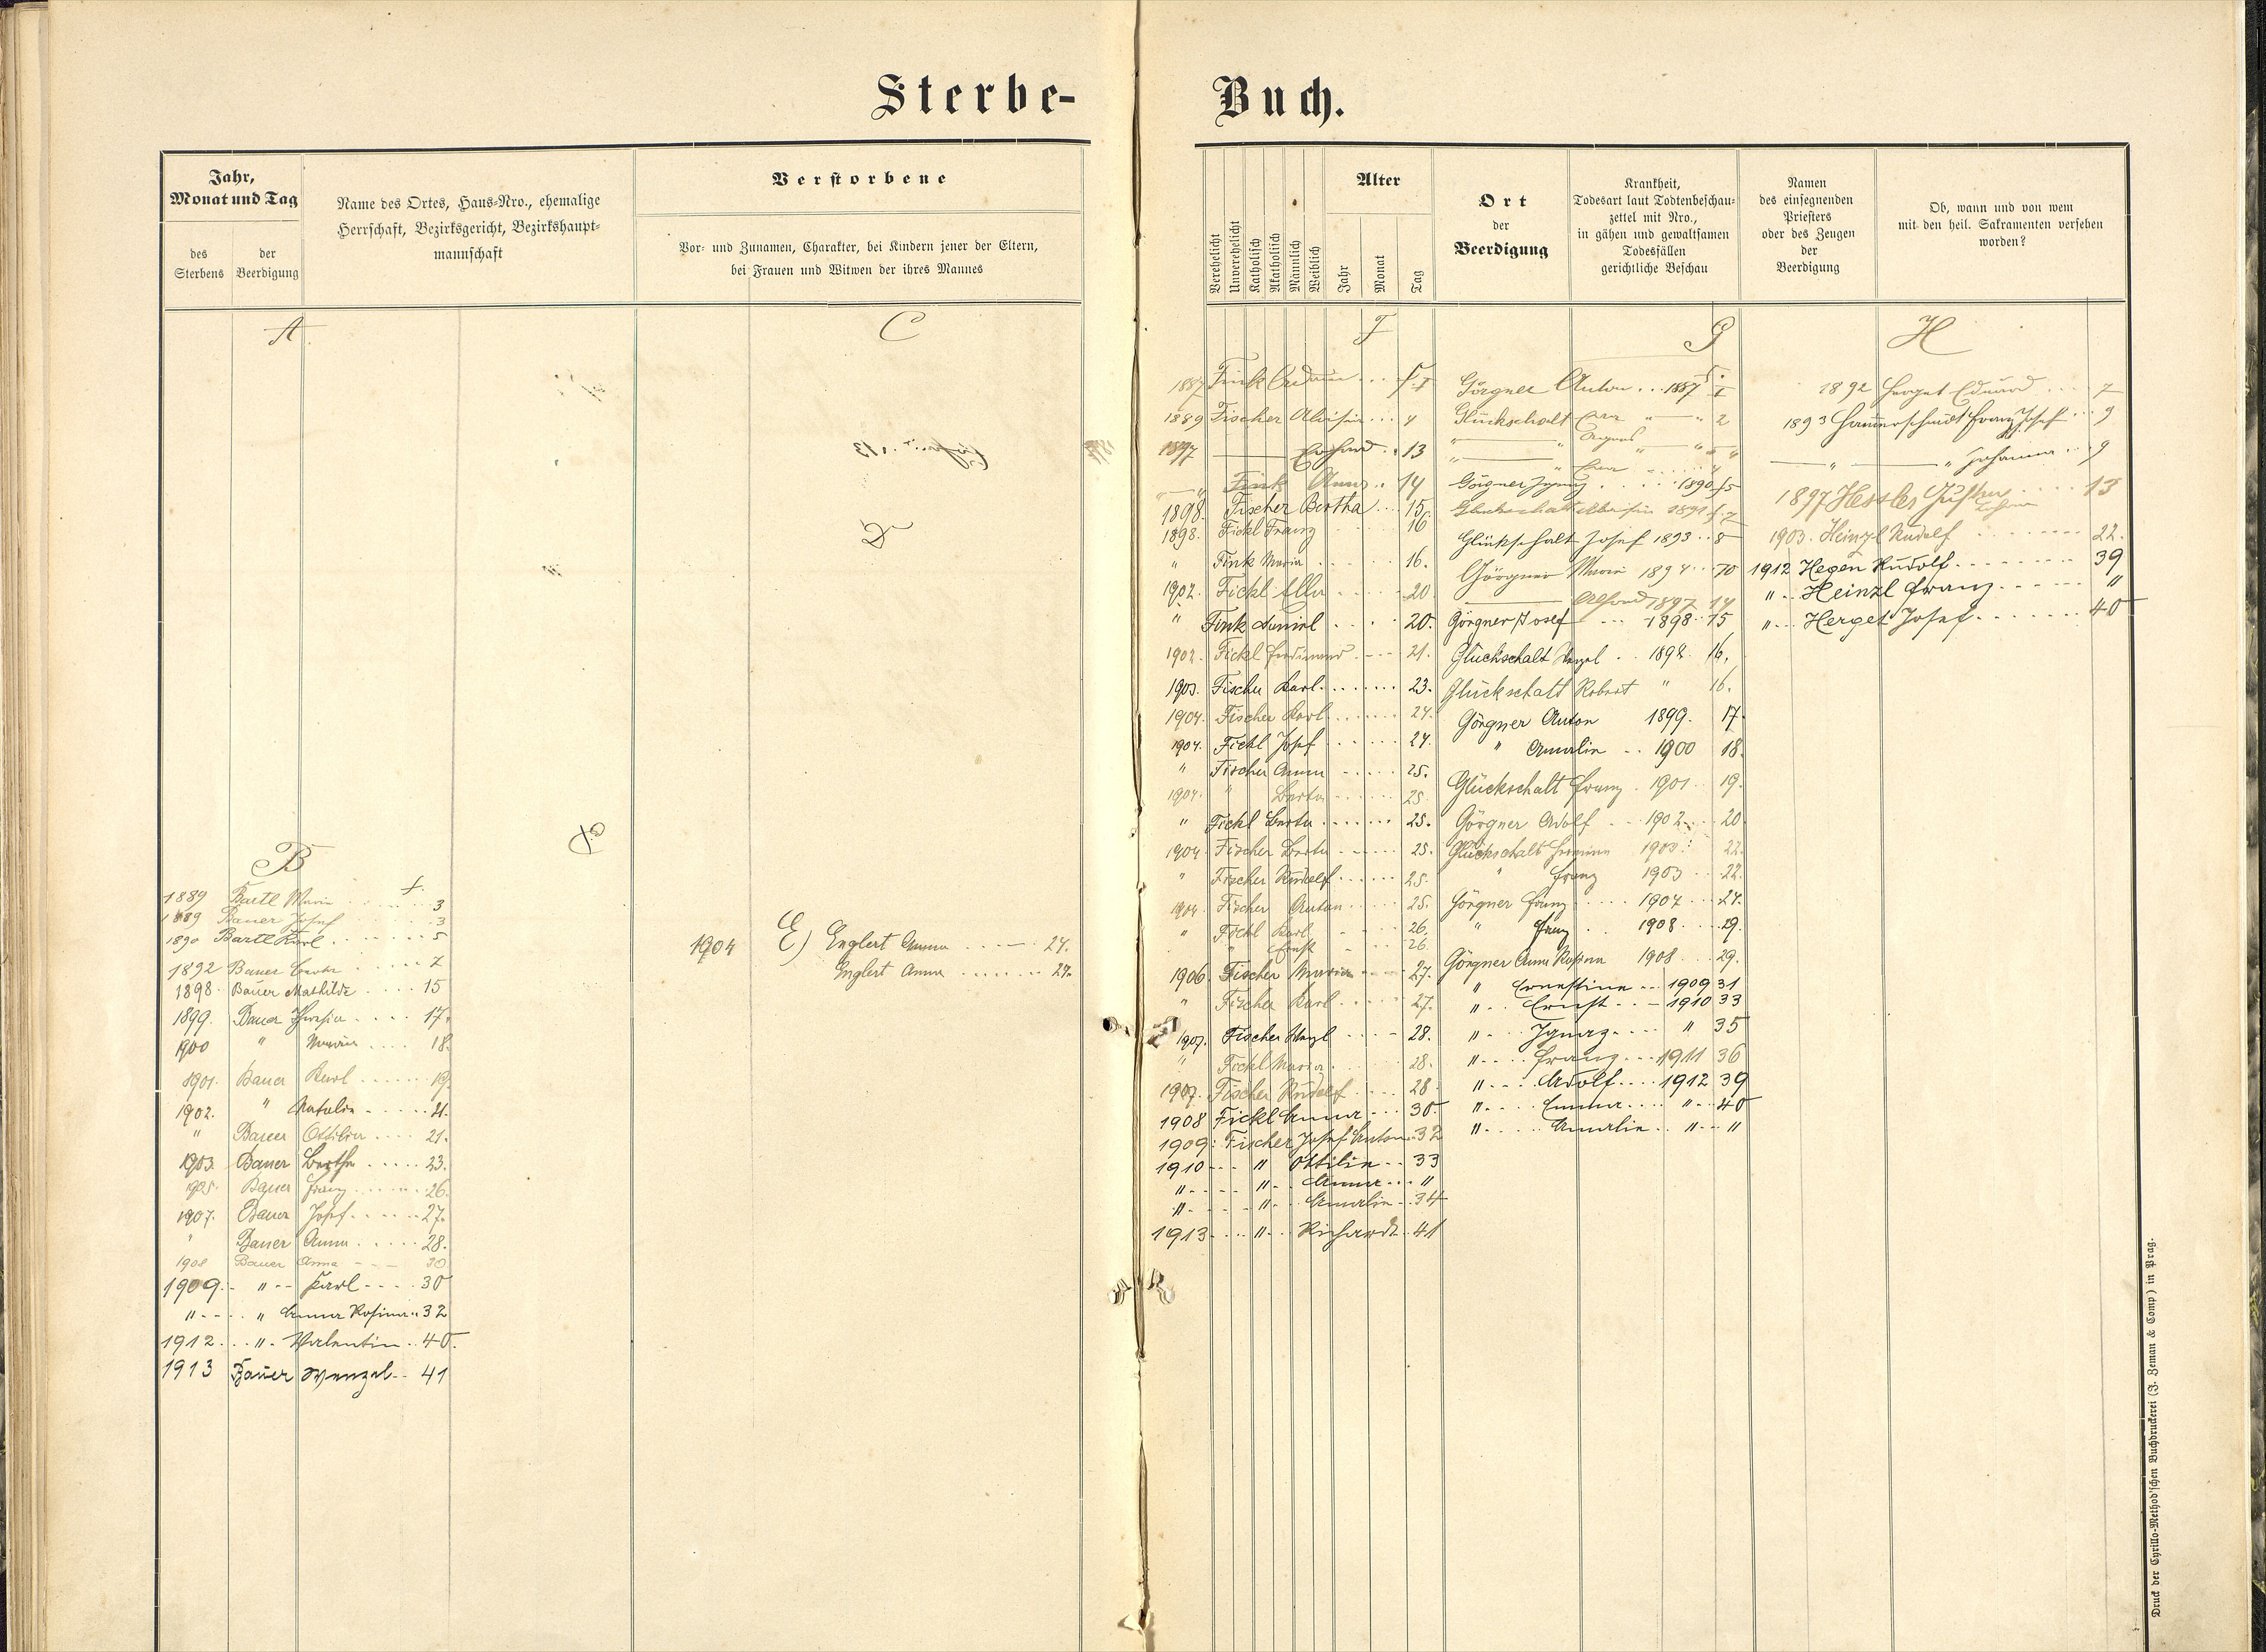 Sterbe-
Buch.
Jahr,
Monat und Tag
des
Sterbens
der
Beerdigung
Name des Ortes, Haus-Nro., ehemalige
Herrschaft, Bezirksgericht, Bezirkshaupt-
mannschaft
Verstorbene
Vor- und Zunamen, Charakter, bei Kindern jener der Eltern,
bei Frauen und Witwen der ihres Mannes
A
C
D
B
1889 Bartl Maria . . . f. 3
1889 Bauer Josef . . . 3
1890 Bartl Karl . . . 5
1892 Bauer . . . 7
1898 Bauer Mathilde . . . 15
1899. Bauer Theresia . . . 17.
1900 " Maria . . . 18.
1901. Bauer Karl . . . 19.
1902. " Natalie . . . 21.
" Bauer Ottilia . . . 21.
1903. Bauer Bertha . . . 23.
1905. Bauer Franz . . . 26.
1907. Bauer Josef . . . 27.
" Bauer Anna . . . 28.
1908 Bauer Anna - - - 30
1909. - " - - Karl - - - 30
" - - . . " Anna Rosina . . 32
1912. . . " . Valentin . . 40.
1913 Bauer Wenzel - - 41
1904 E) Englert Anna . . . 24.
Englert Anna . . . 24.
Verehelicht
Unverehelicht
Katholisch
Akatholisch
Männlich
Weiblich
Alter
Jahr
Monat
Tag
Ort
der
Beerdigung
Krankheit,
Todesart laut Todtenbeschau-
zettel mit Nro.,
in gähen und gewaltsamen
Todesfällen
gerichtliche Beschau
Namen
des einsegnenden
Priesters
oder des Zeugen
der
Beerdigung
Ob, wann und von wem
mit den heil. Sakramenten versehen
worden?
F
1887 Fink . . . f. I
1889 Fischer Aloisia . . . 4
1897 — Erhard . . 13
" — " Fink Anna . . 14
1898. Fischer Bertha . . . 15
1898. Fickl Franz 16
" Fink Maria . . . 16.
1902. Fickl Ella . . . 20
" Fink Daniel . . . 20.
1902. Fickl Ferdinand . - - - 21.
1903. Fischer Karl . . . 23.
1904. Fischer Karl . . . 24.
1904. Fickl Josef . . . 24.
" Fischer Anna - . . . 25.
1904. " Berta . . . 25.
" Fickl Berta . . . 25.
1904. Fischer Berta . . . 25.
" Fischer Rudolf . . . 25.
1904 Fischer Anton . . . 25.
" Fickl Karl . . . 26.
" Ernst - . . 26.
1906. Fischer Maria - - - 27.
" Fischer Karl . . . 27.
1907. Fischer Wenzl . . . - 28.
" Fickl Maria . . . 28.
1907. Fischer Rudolf . . . 28
1908 Fickl Anna . . . 30.
1909: Fischer Josef Anton . . 32
1910 - - - " Ottilia - - 33
" - - - - " - . Anna . . . "
" - - - - " - . Amalie - . 34
1913 - . . . " - . . Richardt . . 41
G
Görgner Anton . . . 1887 f. I
Glückschalt " — " 2
" — " Agnes — " — " "
Görgner Ignaz . . . 1890 f. 5
Glückschalt Aloisia 1891 f. 7
Glückschalt Josef 1893 . . 8
Görgner Marie 1894 . . . 10
— Alfred 1897 14
Görgner Josef . . . 1898 . . 15
Glückschalt Wenzel . . 1898. 16.
Glückschalt Robert " 16.
Görgner Anton 1899. 17.
" Amalie . . 1900 18.
Glückschalt Franz . 1901 . . 19.
Görgner Adolf . . . 1902 . . . 20
Glückschalt Hermine 1903. : 22.
" Franz 1903 . . . 22.
Görgner Franz . . . 1904 . . . 24.
" Franz . . 1908. . . . 29.
Görgner Anna Rosina 1908 . . . 29.
" Ernestine - - 1909 31
" . . . Ernst - - - 1910 33
" - . . Ignaz . . . . " 35
" - . . . Franz - . . 1911 36
" - . . . Adolf . . . . 1912 39
" - . . . Emma . . . . " - . 40
" - . . . . Amalie . . " - - "
H
1892 Herget Eduard . . . 7
1893 Hammerschmidt Franz Josef . . 9
— " — " Johanna . . . 9
1897 Hessler Gustav . . . 13
1903. Heinzl Rudolf . . . 22.
1912 Hegen Rudolf . . . 39
" . . Heinzl Franz . . . "
" . . . Herget Josef . . . 40
Druck der Cyrillo-Method'schen Buchdruckerei (J. Zeman & Comp) in Prag.